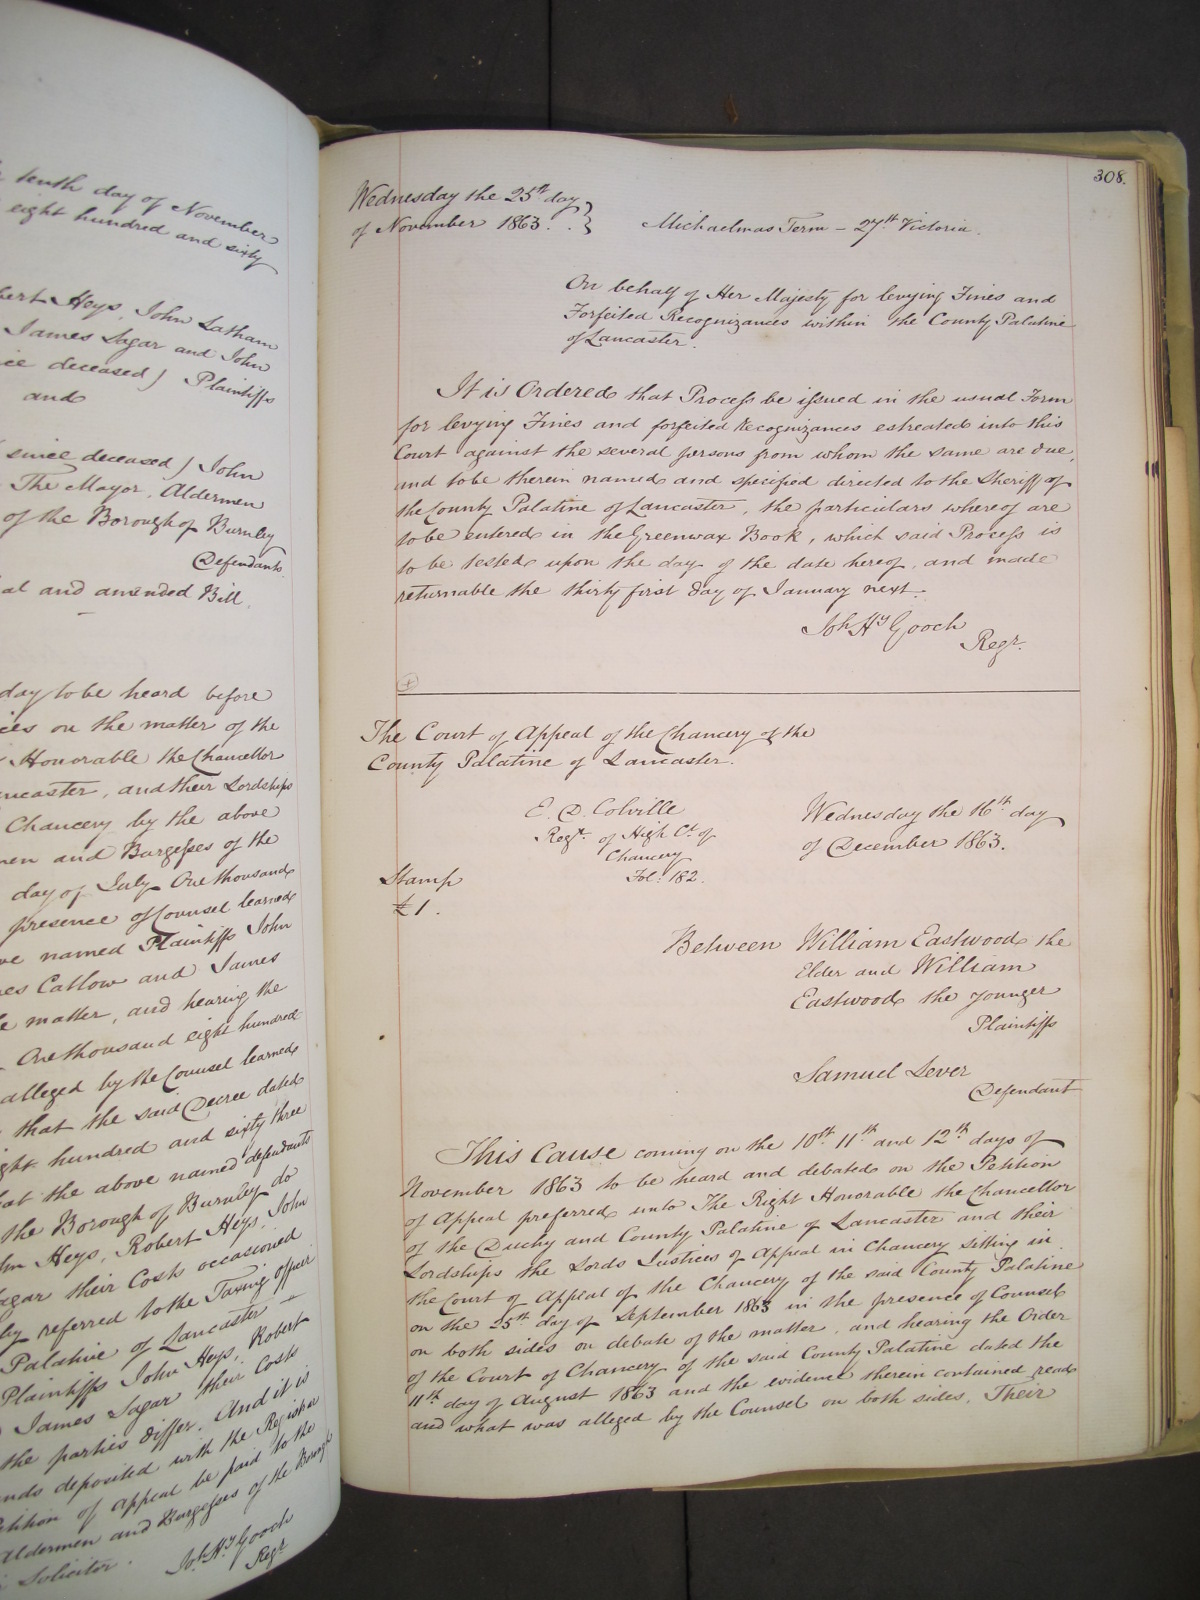 tenth day of November
eight hundred and sixty
bert Heys, John Latham
James Sagar and John
ice deceased) Plaintiffs
and
(since deceased) John
The Mayor, Aldermen
of the Borough of Burnley
Defendants.
al and amended Bill.
day to be heard before
ices on the matter of the
Honorable the Chancellor
ancaster, and their Lordships
Chancery by the above
men and Burgesses of the
day of July One thousand
presence of Counsel learned
ve named Plaintiffs John
es Catlow and James
e matter, and hearing the
One thousand eight hundred
alleged by the Counsel learned
that the said Decree dated
ight hundred and sixty three
hat the above named defendants
the Borough of Burnley do
hn Heys, Robert Heys, John
agar their Costs occasioned
by referred to the Taxing Officer
Palatine of Lancaster
Plaintiffs John Heys, Robert
James Sagar their Costs
the parties differ. And it is
nds deposited with the Registrar
etition of Appeal be paid to the
Aldermen and Burgesses of the Borough
Solicitor.
Joh Hy Gooch
Regr
308.
Wednesday the 25th day
of November 1863. } Michaelmas Term – 27th Victoria.
On behalf of Her Majesty for levying Fines and
Forfeited Recognizances within the County Palatine
of Lancaster.
It is Ordered that Process be issued in the usual Form
for levying Fines and forfeited Recognizances estreated into this
Court against the several persons from whom the same are due,
and to be therein named and specified directed to the Sheriff of
the County Palatine of Lancaster, the particulars whereof are
to be entered in the Greenwax Book, which said Process is
to be tested upon the day of the date hereof, and made
returnable the thirty first day of January next.
Joh Hy Gooch
Regr.
The Court of Appeal of the Chancery of the
County Palatine of Lancaster.
E. D. Colville
Regr. of High Ct. of
Chancery
Fol. 182.
Wednesday the 16th day
of December 1863.
Stamp
£1.
Between William Eastwood the
Elder and William
Eastwood the younger
Plaintiffs
Samuel Lever
Defendant
This Cause coming on the 10th 11th and 12th days of
November 1863 to be heard and debated on the Petition
of Appeal preferred unto The Right Honorable the Chancellor
of the Duchy and County Palatine of Lancaster and their
Lordships the Lords Justices of Appeal in Chancery sitting in
the Court of Appeal of the Chancery of the said County Palatine
on the 25th day of September 1863 in the presence of Counsel
on both sides on debate of the matter, and hearing the Order
of the Court of Chancery of the said County Palatine dated the
11th day of August 1863 and the evidence therein contained read
and what was alleged by the Counsel on both sides, Their